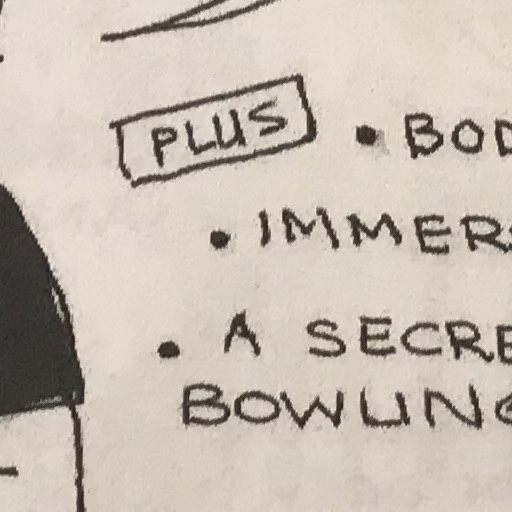 PLUS • BOD
• IMMERS
• A SECRE
BOWLING